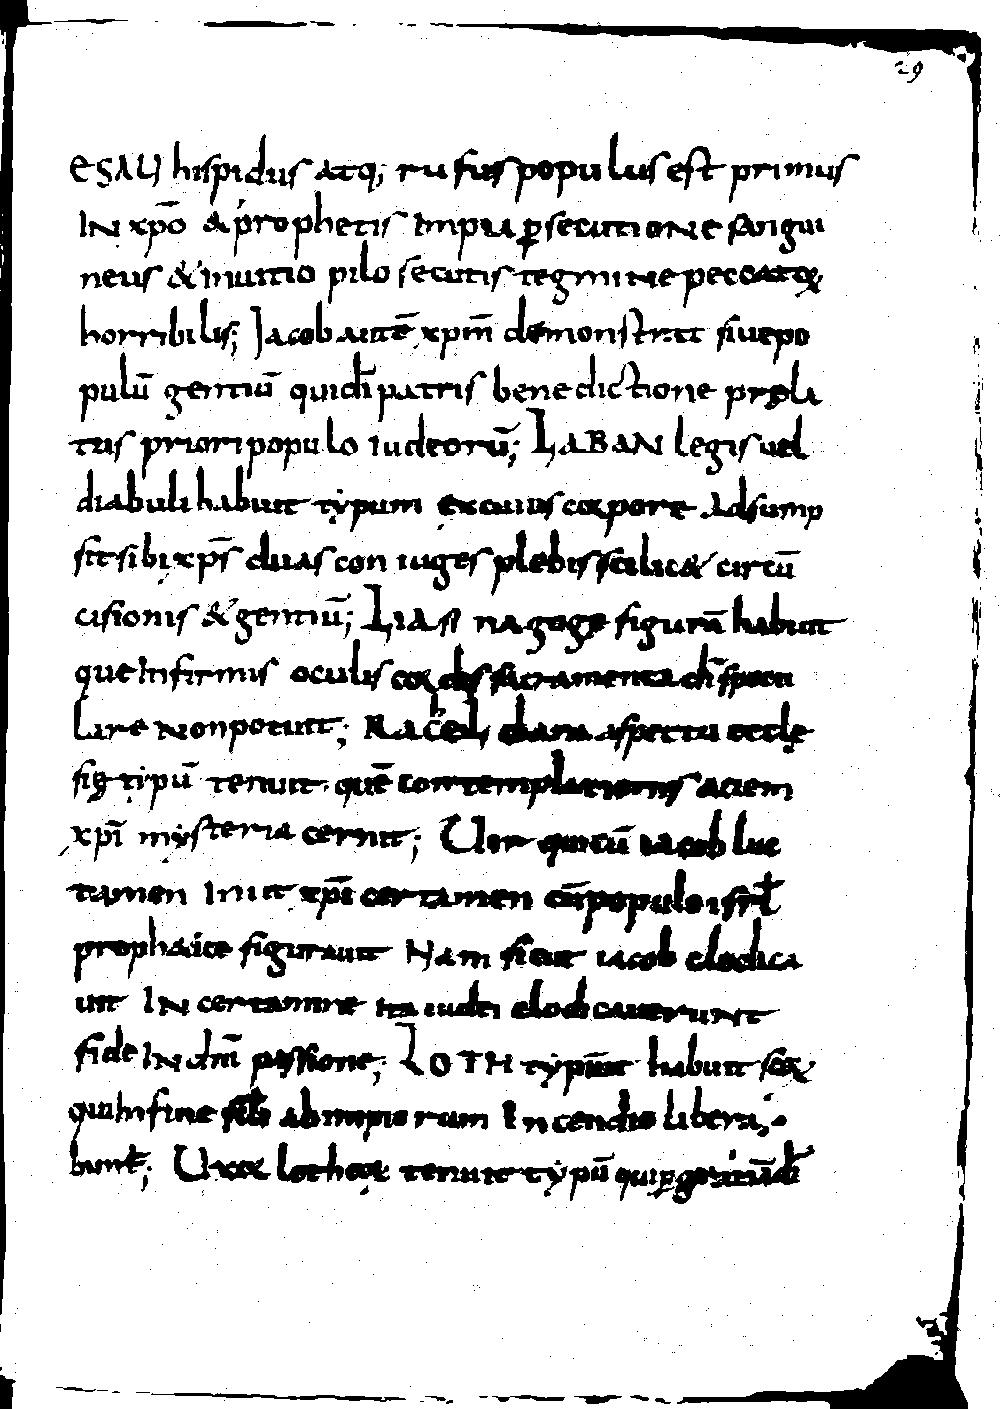 29
ESAU hispidus atq; rufus populus est primus
IN xpō & prophetis impia ꝑsecutione sangui
neus & inuitio pilosecutis tegmine peccatoꝝ
horribilis; Jacob autē xpm̄ demonstrat siue po
pulū gentiū qui di patris benedictione prela
tus priori populo iudeorū; LABAN legis uel
diabuli habuit typum ex cuius corpore adsump
sit sibi xps̄ duas coniuges plebis scilic& circū
cisionis & gentiū; LIA sinagoge figurā habuit
que infirmis oculis cordis sacramenta dī specu
lare non potuit; Rachel clara aspectu eccle
sie tipū tenuit quē contemplationis aciem
xpī mysteria cernit; Uir qui cū iacob luc
tamen iniit xpī certamen cū populo isrl
prophetice figurauit Nam sicut iacob clodica
uit in certamine ita iudei clodicauerunt
fide in dnī passione; LOTH typum habuit
qui in fine ab impiorum incendio libera
bunt; Uxor loth tenuit typū qui ꝑ gratiā dī